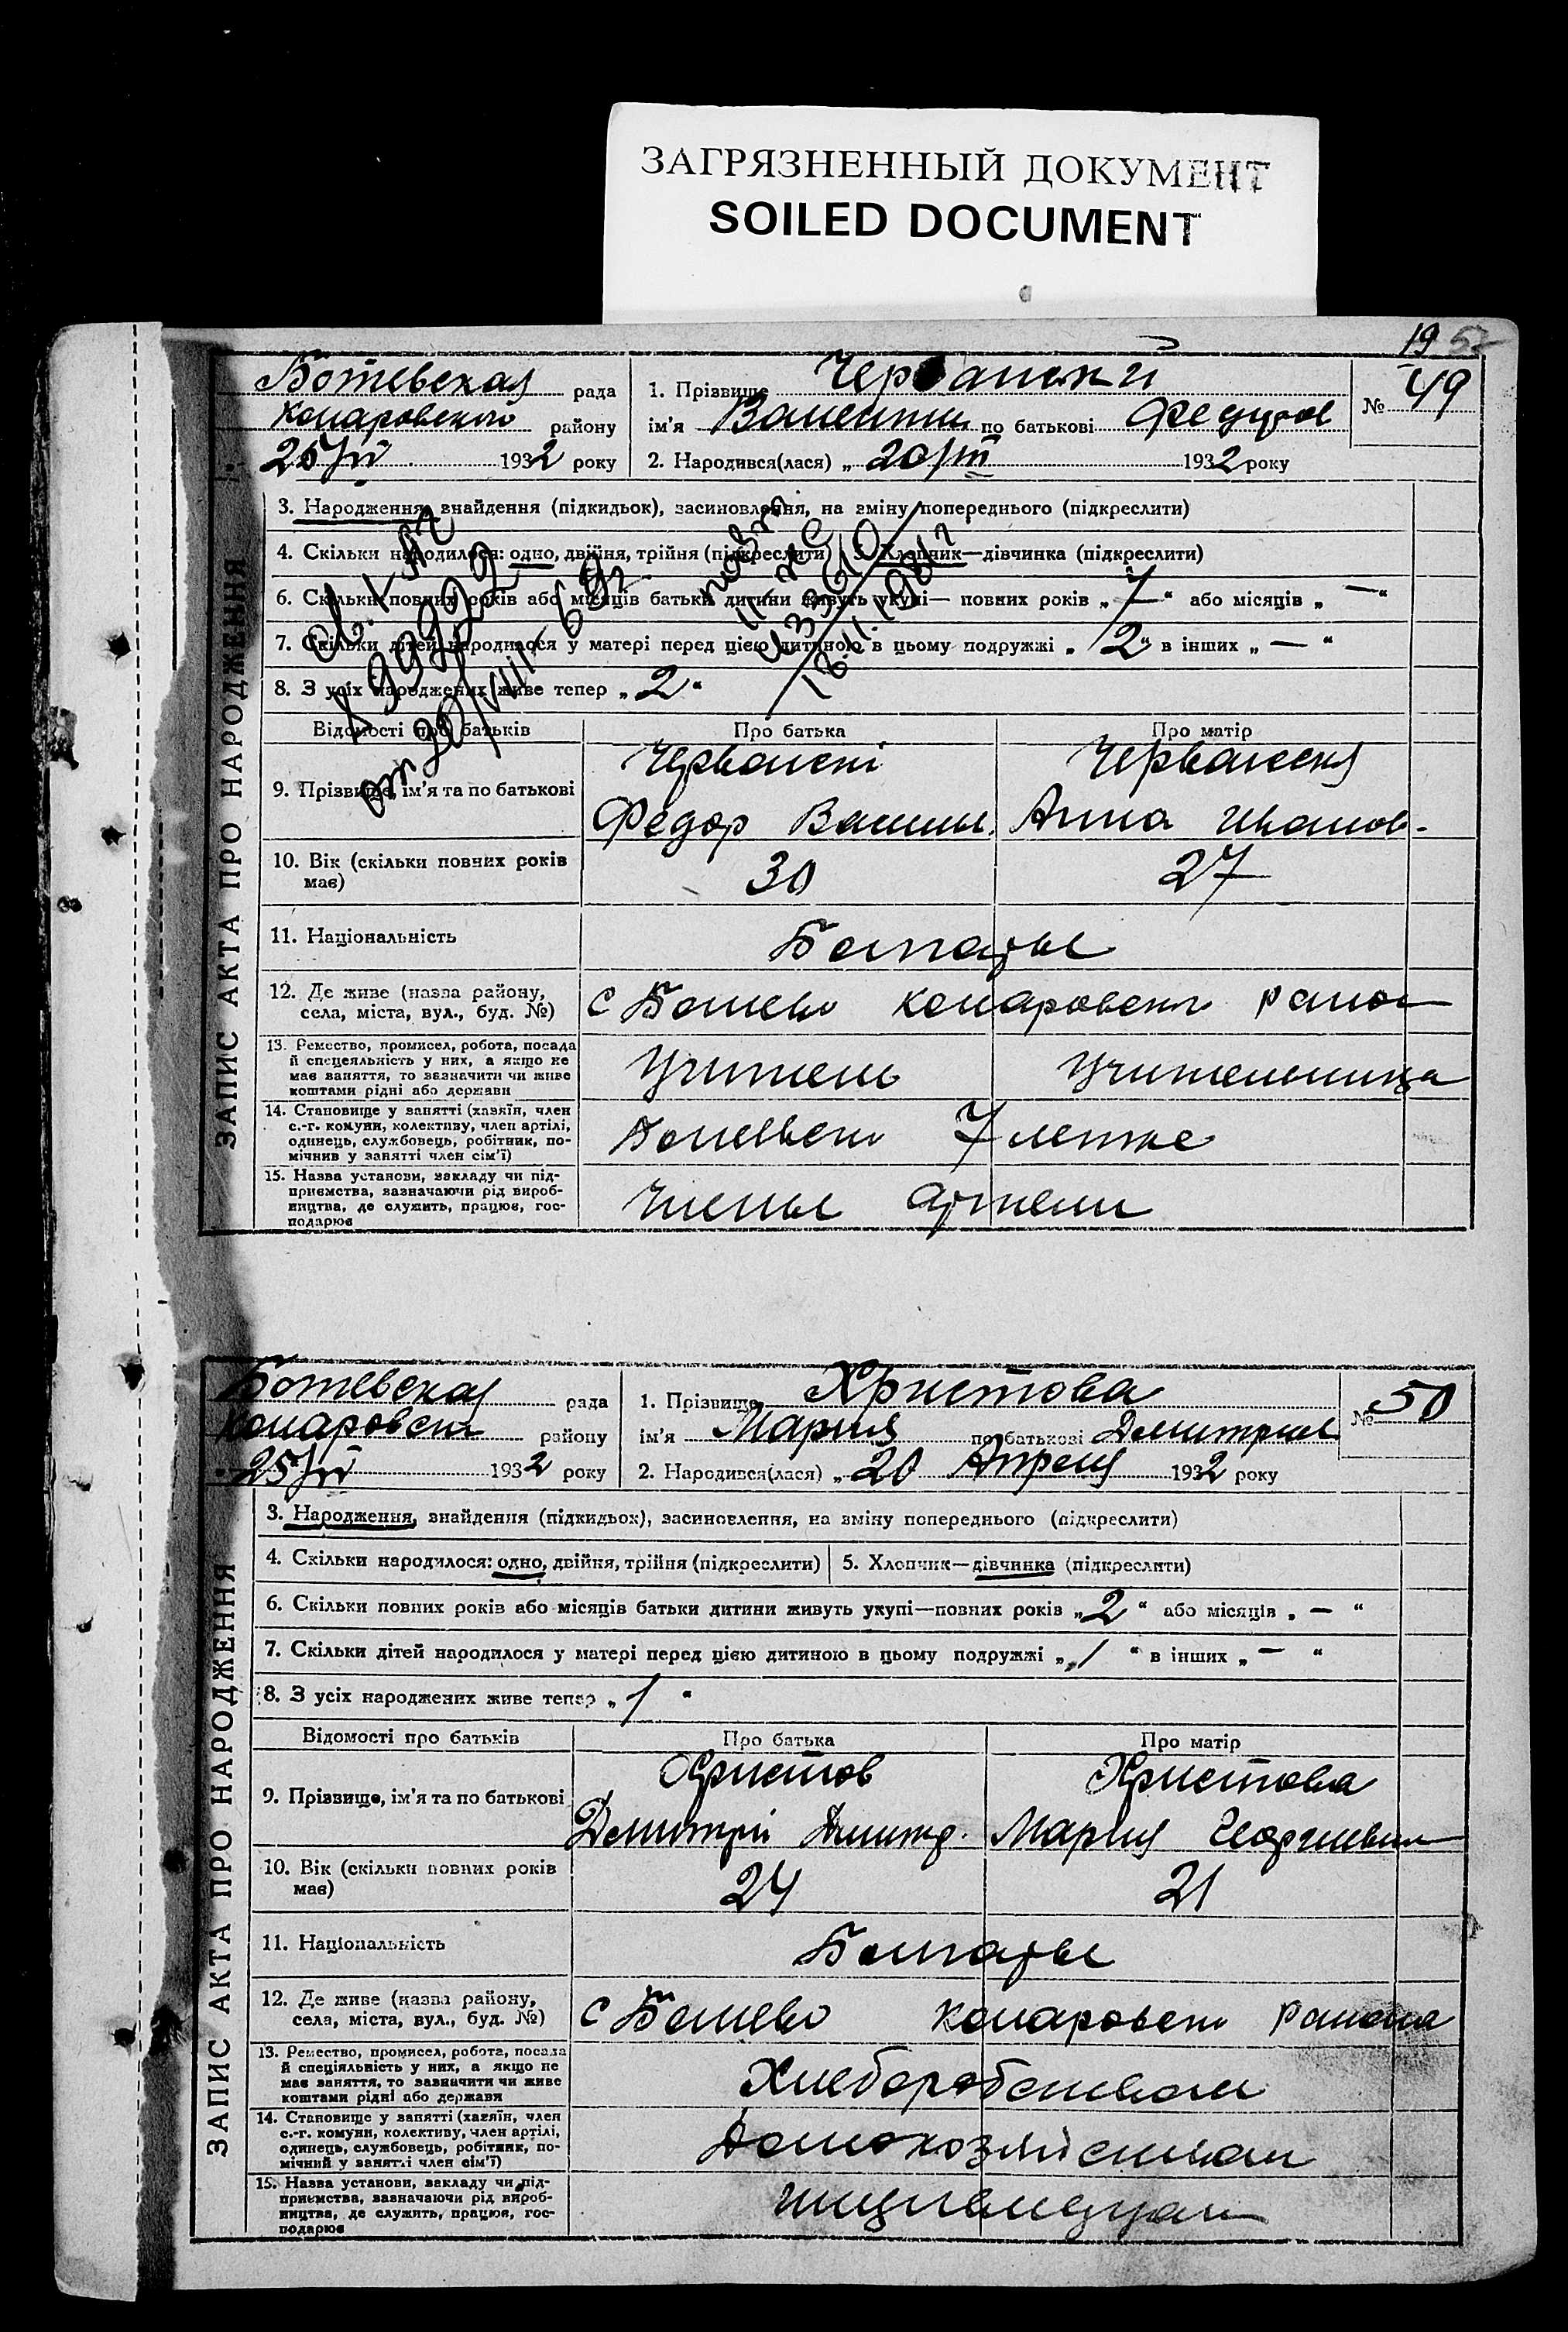 ЗАГРЯЗНЕННЫЙ ДОКУМЕНТ
SOILED DOCUMENT
19 52
ЗАПИС АКТА ПРО НАРОДЖЕННЯ
Ботевская рада
Комаровского району
25/IV 1932 року
1. Прізвище Червански
ім'я Валентин по батькові Федоров
2. Народився(лася) „ 20/III 1932 року
№ 49
3. Народження, знайдення (підкидьок), засиновлення, на зміну попереднього (підкреслити)
4. Скільки народилося: одно, двійня, трійня (підкреслити) 5. Хлопчик—дівчинка (підкреслити)
6. Скільки повних років або місяців батьки дитини живуть укупі— повних років „ 7 “ або місяців „ — “
7. Скільки дітей народилося у матері перед цією дитиною в цьому подружжі „ 2 “ в інших „ — “
8. З усіх народжених живе тепер „ 2 “
от 20/VIII-69г
18.11.1981г
Відомості про батьків Про батька Про матір
9. Прізвище, ім'я та по батькові
Червански Червански
Федор Анна Иванов.
10. Вік (скільки повних років має) 30 27
11. Національність Болгары
12. Де живе (назва району, села, міста, вул., буд. №) с Ботево Комаровского района
13. Ремество, промисел, робота, посада
й спецеяльність у них, а якщо не
має заняття, то зазначити чи живе
коштами рідні або держави
Учитель Учительница
14. Становище у занятті (хазяїн, член
с.-г. комуни, колективу, член артілі,
одинець, службовець, робітник, по-
мічник у занятті член сім'ї)
Ботевской 7 летке
15. Назва установи, закладу чи під-
приємства, зазначаючи рід вироб-
ництва, де служить, працює, гос-
подарює
Члены артели
ЗАПИС АКТА ПРО НАРОДЖЕННЯ
Ботевская рада
Комаровского району
25/IV 1932 року
1. Прізвище Христова
ім'я Мария по батькові Димитриев
2. Народився(лася) „ 20 Апреля 1932 року
№ 50
3. Народження, знайдення (підкидьок), засиновлення, на зміну попереднього (підкреслити)
4. Скільки народилося: одно, двійня, трійня (підкреслити) 5. Хлопчик—дівчинка (підкреслити)
6. Скільки повних років або місяців батьки дитини живуть укупі—повних років „ 2 “ або місяців „ — “
7. Скільки дітей народилося у матері перед цією дитиною в цьому подружжі „ 1 “ в інших „ — “
8. З усіх народжених живе тепер „ 1 “
Відомості про батьків Про батька Про матір
9. Прізвище, ім'я та по батькові
Христов Христова
Димитри Димитр. Мария Георгиевна
10. Вік (скільки повних років має) 24 21
11. Національність Болгары
12. Де живе (назва району, села, міста, вул., буд. №) с Ботево Комаровского района
13. Ремество, промисел, робота, посада
й спеціяльність у них, а якщо не
має заняття, то зазначити чи живе
коштами рідні або держави
Хлеборобством
14. Становище у занятті (хазяїн, член
с.-г. комуни, колективу, член артілі,
одинець, службовець, робітник, по-
мічний у занятті член сім'ї)
Домохозяйством
15. Назва установи, закладу чи під-
приємства, зазначаючи рід вироб-
ництва, де служить, працює, гос-
подарює